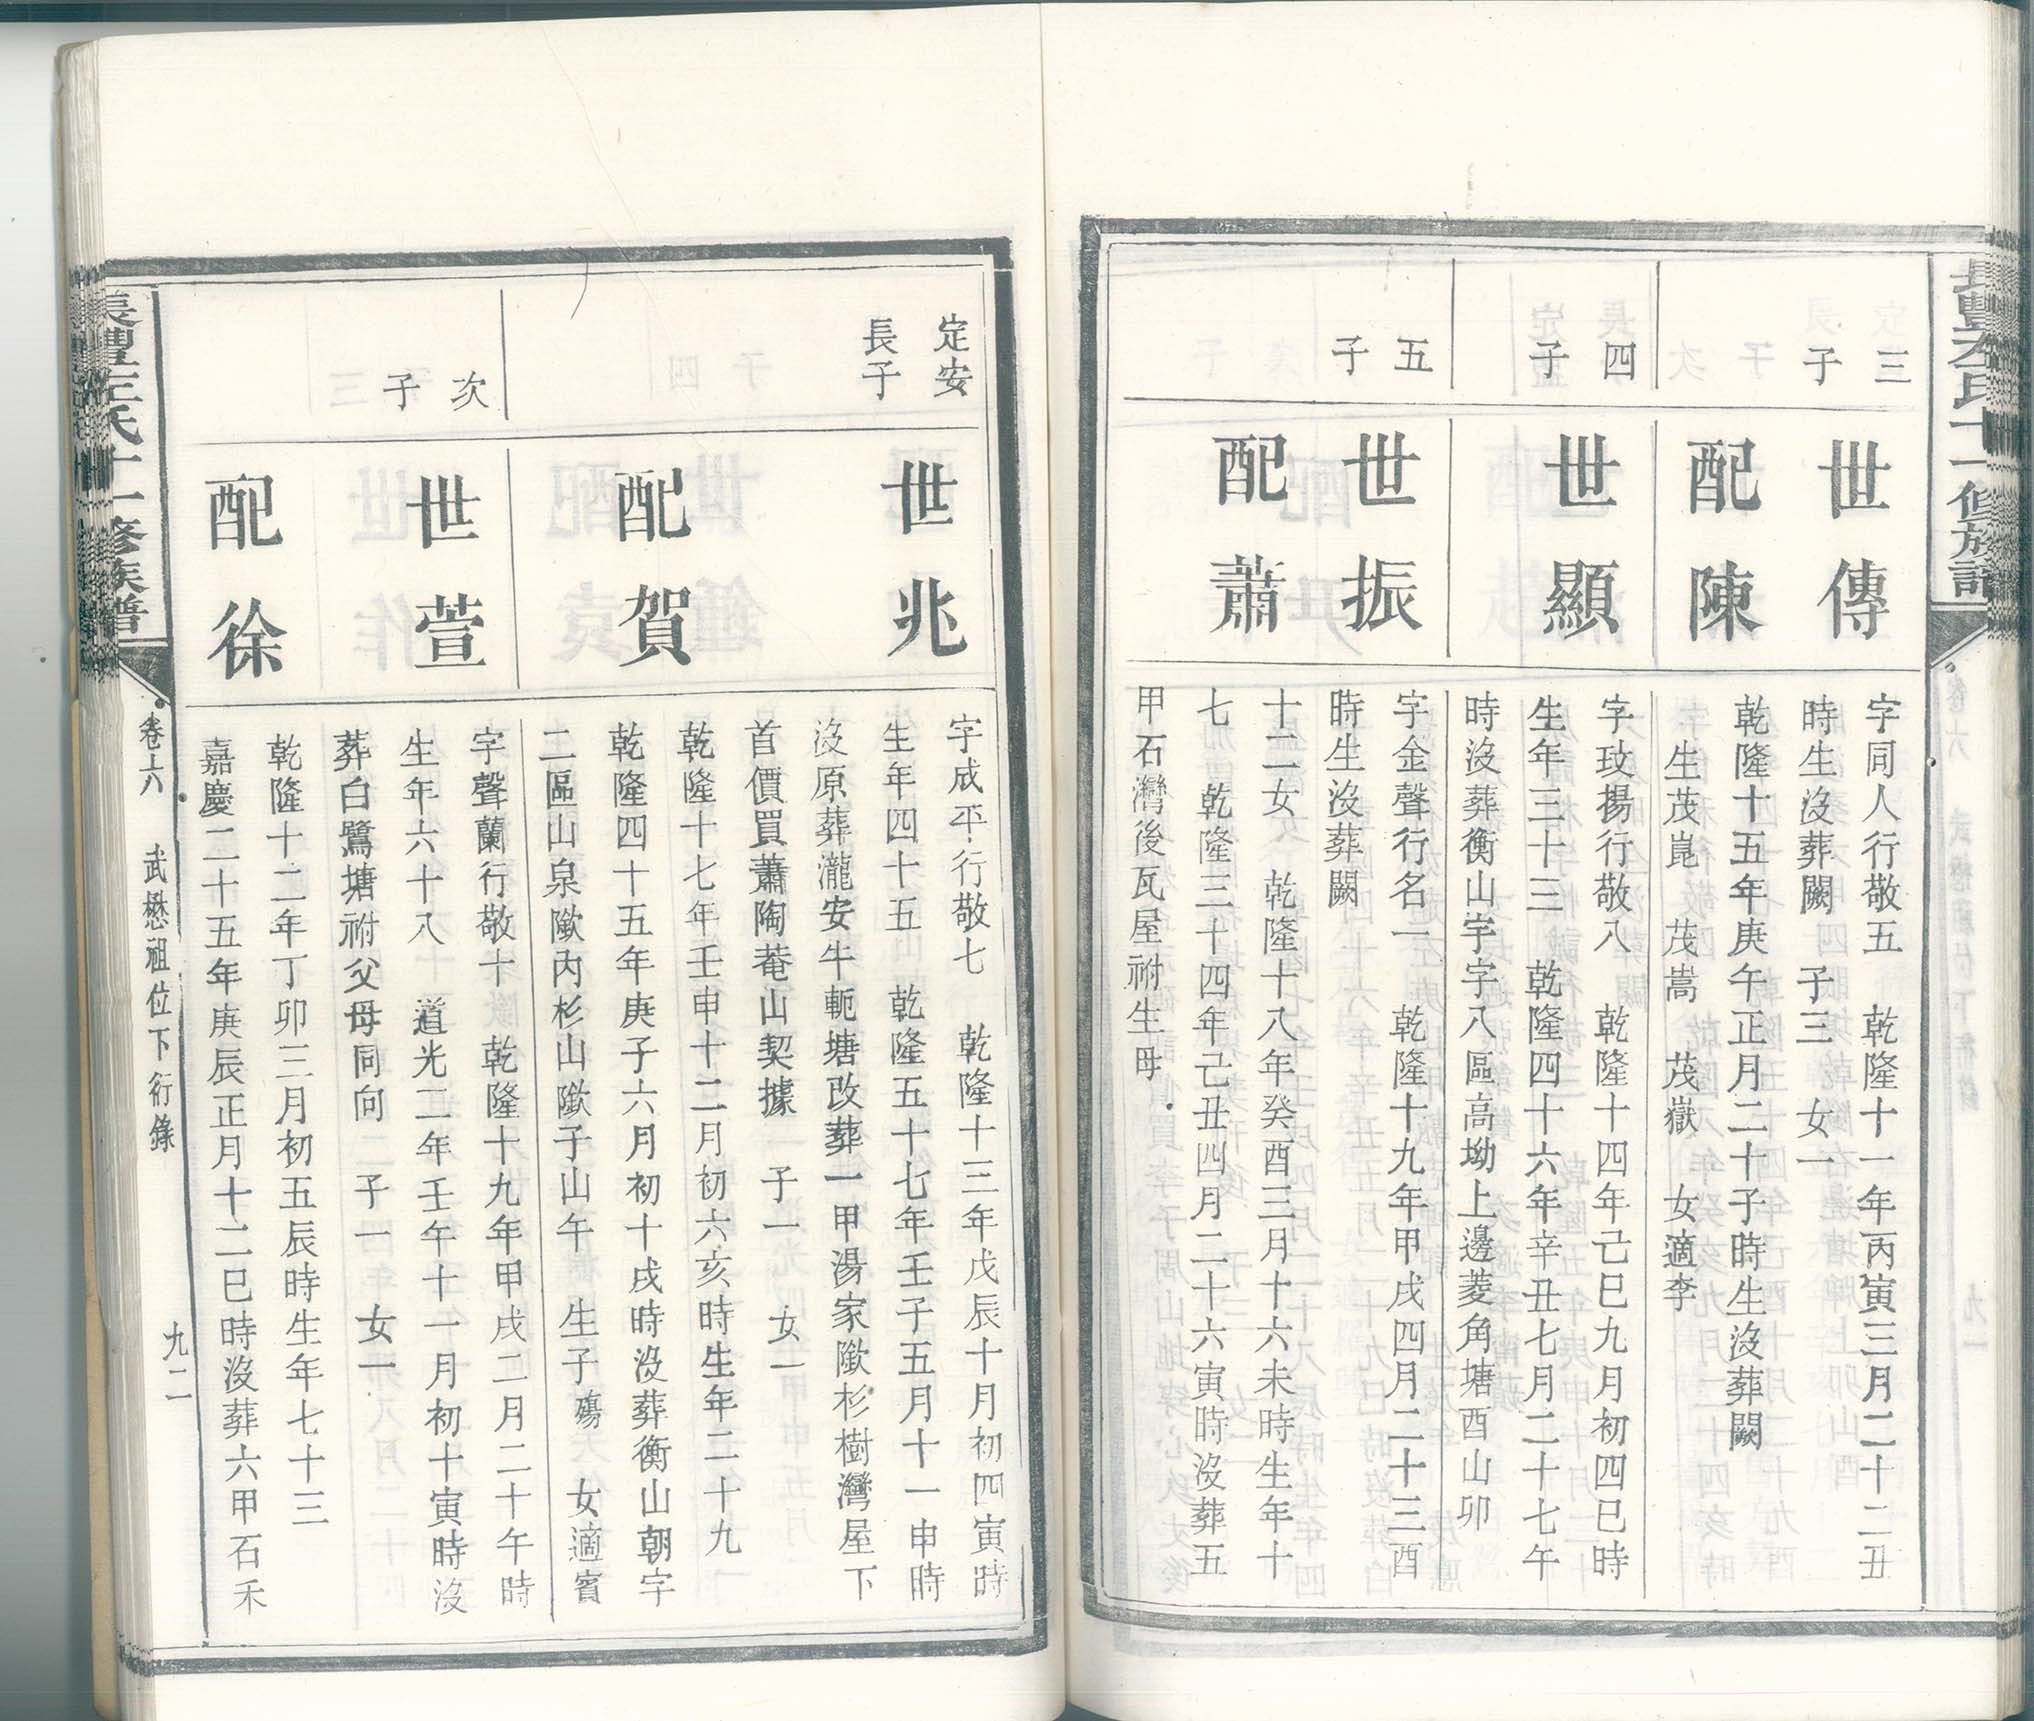 長豐左氏十一修族譜
三
子
世傳
配陳
字同人行敬五　乾隆十一年丙寅三月二十二丑
時生沒葬闕　子三　女一
乾隆十五年庚午正月二十子時生沒葬闕
生茂崑　茂嵩　茂嶽　女適李
四
子
世顯
字玟揚行敬八　乾隆十四年己巳九月初四巳時
生年三十三　乾隆四十六年辛丑七月二十七午
時沒葬衡山字字八區高坳上邊菱角塘酉山卯
五
子
世振
配蕭
字金聲行名一　乾隆十九年甲戌四月二十三酉
時生沒葬闕
十二女　乾隆十八年癸酉三月十六未時生年十
七　乾隆三十四年己丑四月二十六寅時沒葬五
甲石灣後瓦屋祔生母
定安
長子
世兆
配賀
字成平行敬七　乾隆十三年戊辰十月初四寅時
生年四十五　乾隆五十七年壬子五月十一申時
沒原葬瀧安牛軛塘改葬一甲湯家隞杉樹灣屋下
首價買蕭陶菴山契據　子一　女一
乾隆十七年壬申十二月初六亥時生年二十九
乾隆四十五年庚子六月初十戌時沒葬衡山朝字
二區山泉隞內杉山隞子山午　生子殤　女適賓
次
子
世萱
配徐
字聲蘭行敬十　乾隆十九年甲戌二月二十午時
生年六十八　道光二年壬午十一月初十寅時沒
葬白鷺塘祔父母同向　子一　女一
乾隆十二年丁卯三月初五辰時生年七十三
嘉慶二十五年庚辰正月十二巳時沒葬六甲石禾
長豐左氏十一修族譜
卷六　武懋祖位下衍錄　九二